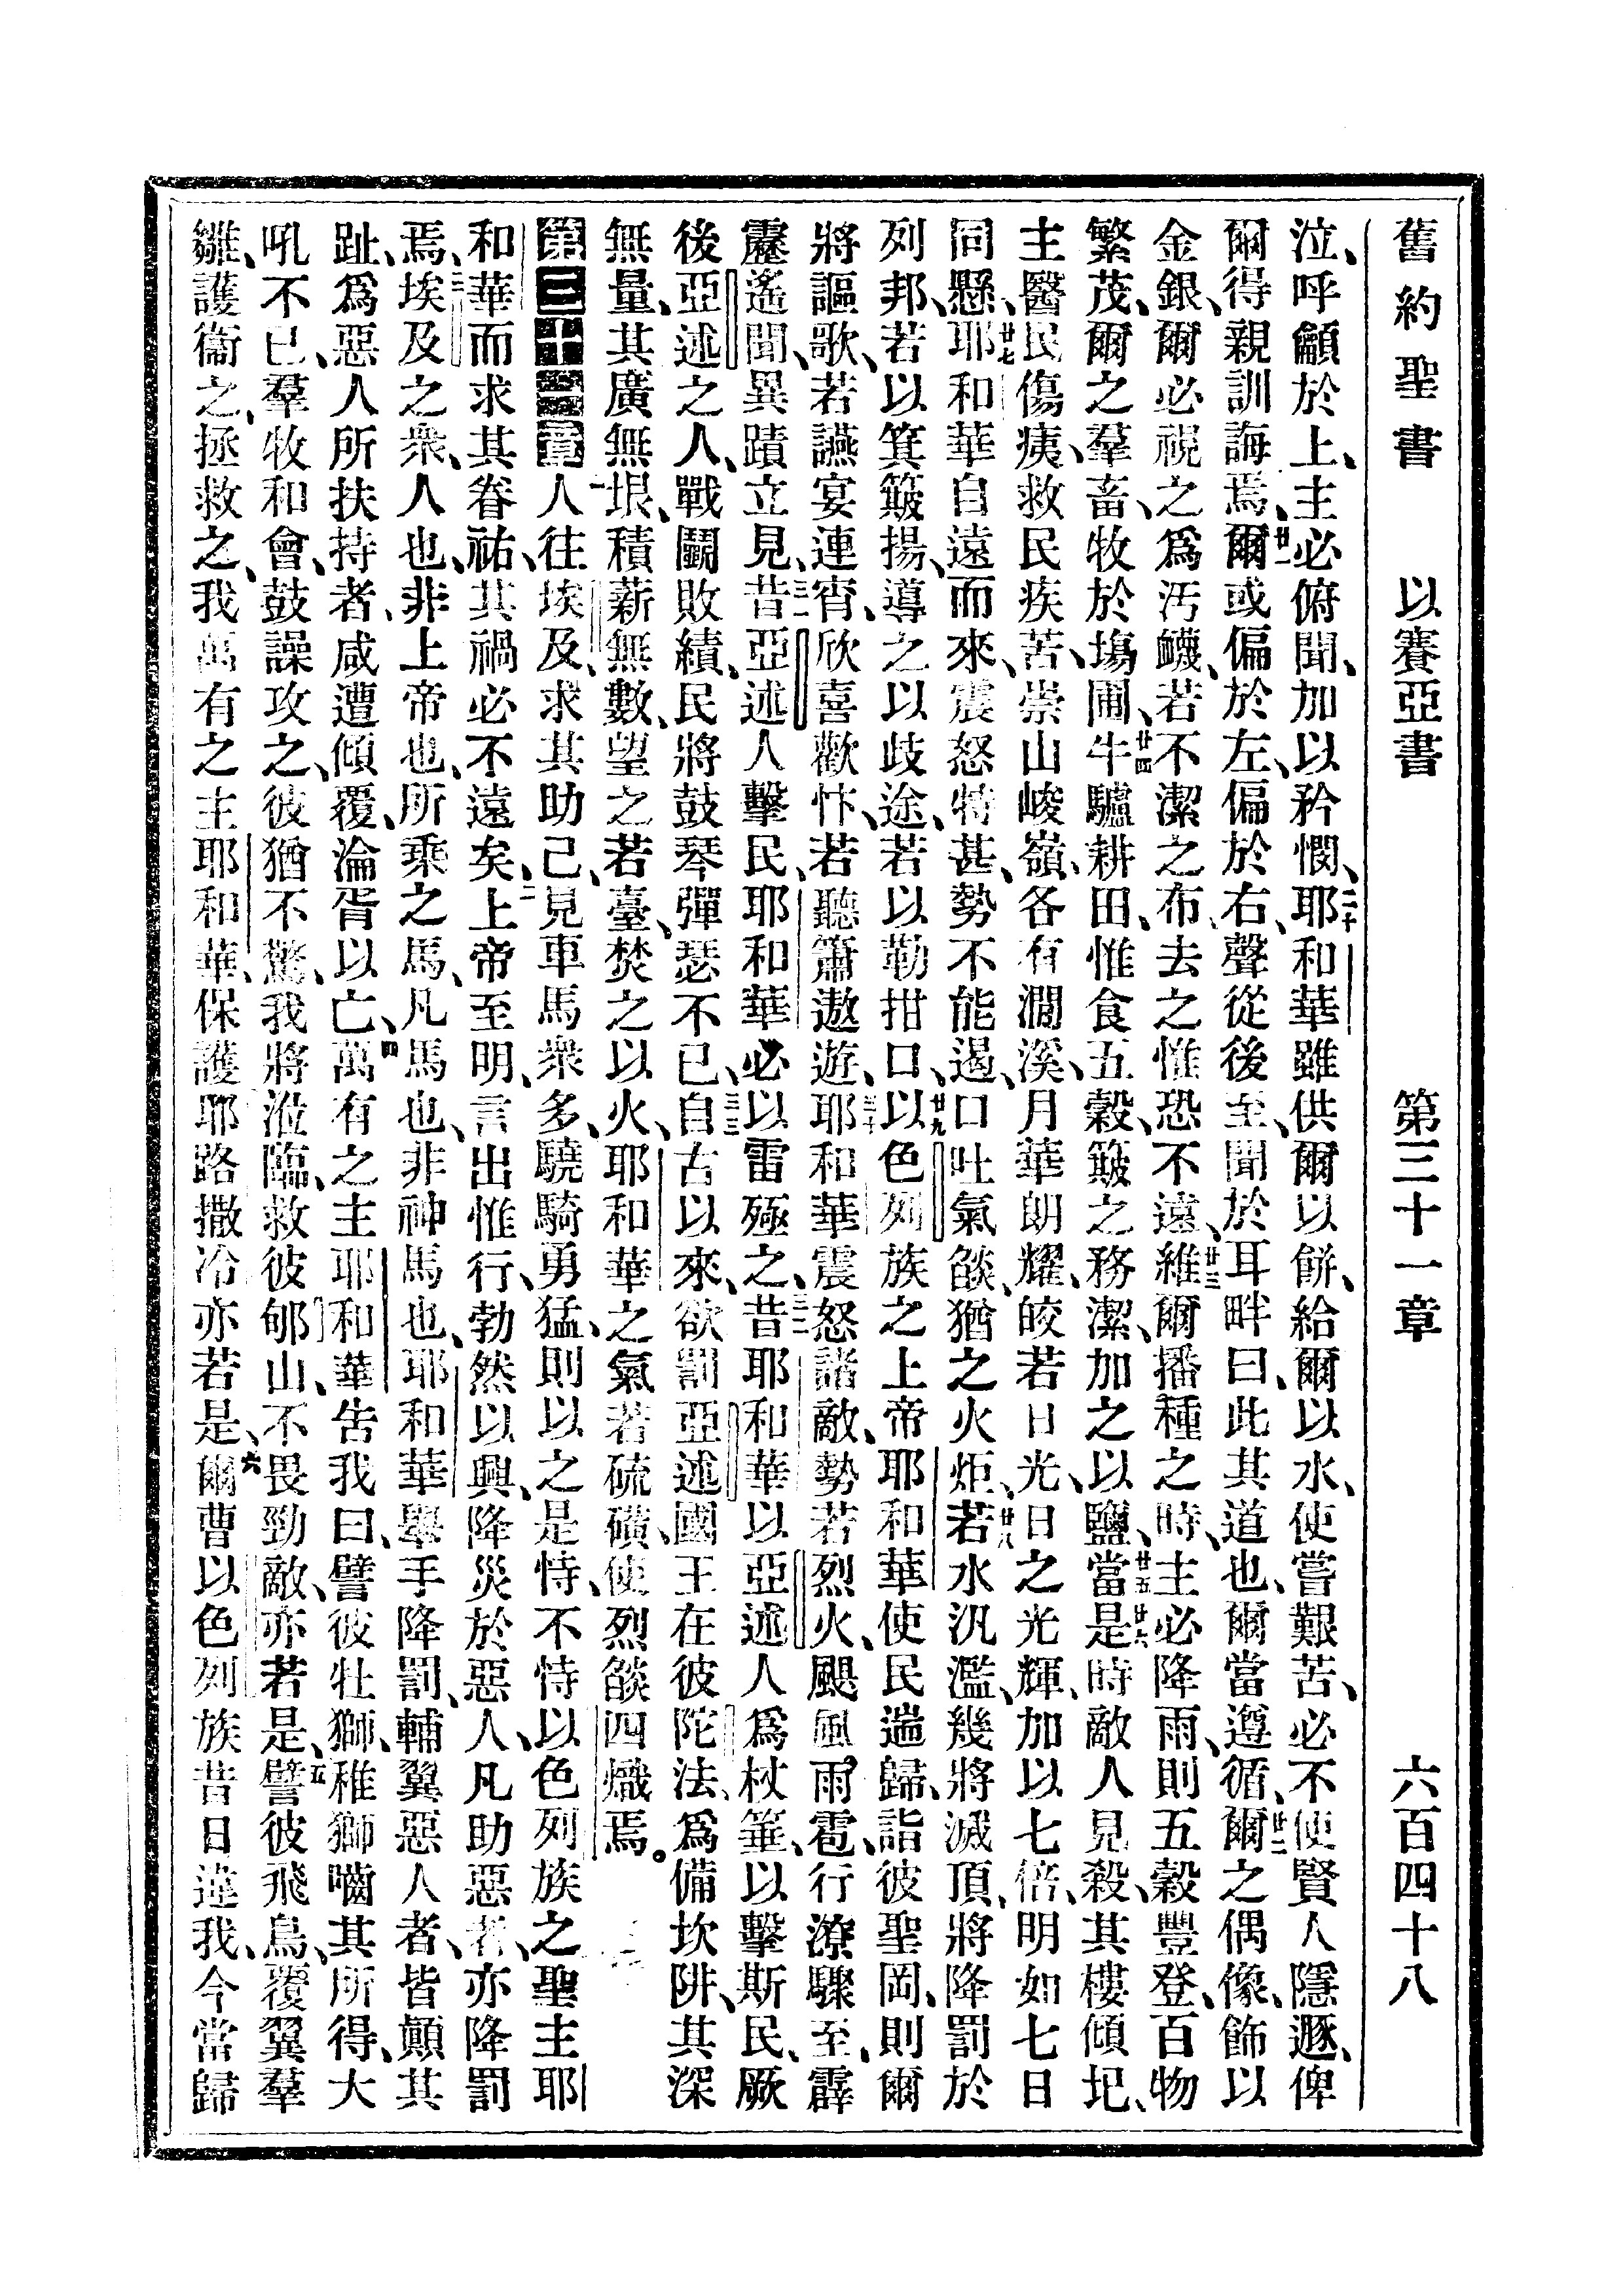 舊約聖書 以賽亞書 第三十一章 六百四十八
泣、呼籲於上、主必俯聞、加以矜憫、二十耶和華雖供爾以餅、給爾以水、使嘗艱苦、必不使賢人隱遯、俾
爾得親訓誨焉、廿一爾或偏於左、偏於右、聲從後至、聞於耳畔曰、此其道也、爾當遵循、廿二爾之偶像、飾以
金銀、爾必視之爲汚衊、若不潔之布、去之惟恐不遠、廿三維爾播種之時、主必降雨、則五穀豐登、百物
繁茂、爾之羣畜、牧於塲圃、廿四牛驢耕田、惟食五穀、簸之務潔、加之以鹽、廿五當是廿六時敵人見殺、其樓傾圮、
主醫民傷痍、救民疾苦、崇山峻嶺、各有澗溪、月華朗耀、皎若日光、日之光輝、加以七倍、明如七日
同懸、廿七耶和華自遠而來、震怒特甚、勢不能遏、口吐氣燄、猶之火炬、廿八若水汎濫、幾將滅頂、將降罰於
列邦、若以箕簸揚、導之以歧途、若以勒拑口、廿九以色列族之上帝耶和華使民遄歸、詣彼聖岡、則爾
將謳歌、若讌宴連宵、欣喜歡忭、若聽簫遨遊、三十耶和華震怒諸敵、勢若烈火、颶風雨雹、行潦驟至、霹
靂遙聞、異蹟立見、三一昔亞述人擊民、耶和華必以雷殛之、三二昔耶和華以亞述人爲杖箠、以擊斯民、厥
後亞述之人、戰鬬敗績、民將鼓琴彈瑟不已、三三自古以來、欲罰亞述國王在彼陀法、爲備坎阱、其深
無量、其廣無垠、積薪無數、望之若臺、焚之以火、耶和華之氣若硫磺、使烈燄四熾焉。
第三十一章 一人往埃及、求其助己、見車馬衆多、驍騎勇猛、則以之是恃、不恃以色列族之聖主耶
和華而求其眷祐、其禍必不遠矣、二上帝至明、言出惟行、勃然以興、降災於惡人、凡助惡者、亦降罰
焉、三埃及之衆、人也、非上帝也、所乘之馬、凡馬也、非神馬也、耶和華舉手降罰、輔翼惡人者、皆顚其
趾、爲惡人所扶持者、咸遭傾覆、淪胥以亡、四萬有之主耶和華吿我曰、譬彼牡獅、稚獅嚙其所得、大
吼不已、羣牧和會、鼓譟攻之、彼猶不驚、我將涖臨、救彼郇山、不畏勁敵、亦若是、五譬彼飛鳥、覆翼羣
雛、護衞之、拯救之、我萬有之主耶和華、保護耶路撒冷亦若是、六爾曹以色列族昔日違我、今當歸